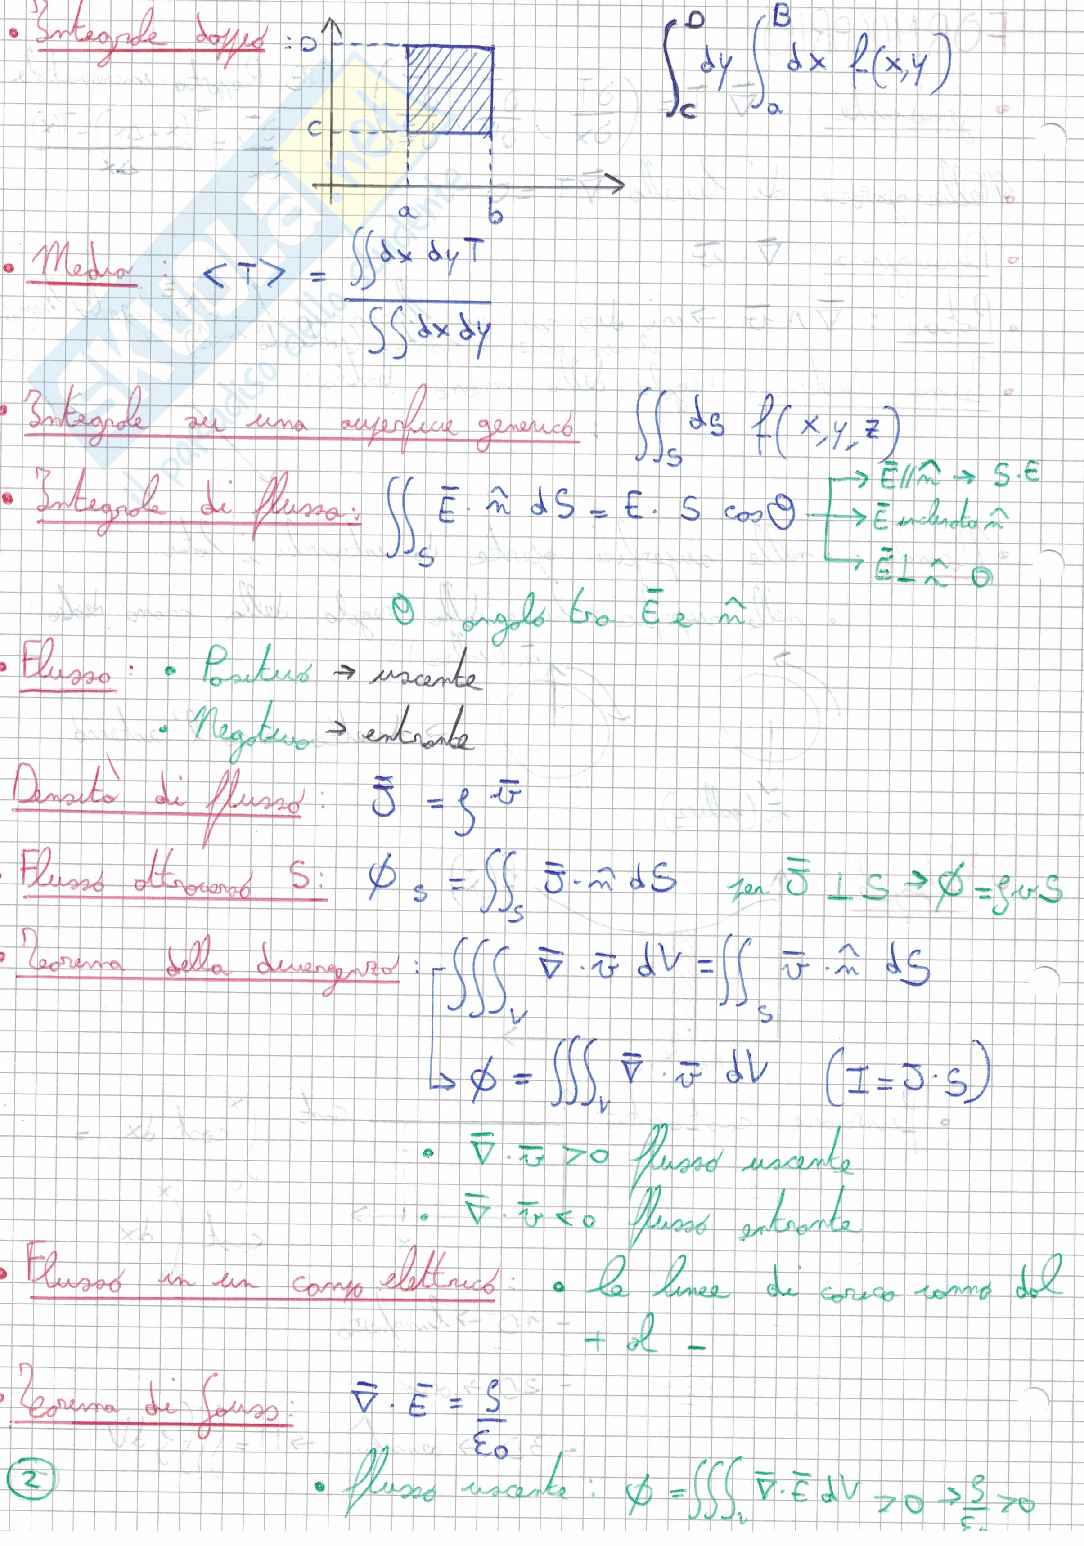 • Integrale doppio : D C a b ∫_C^D dy ∫_a^B dx f(x,y)
• Media : <T> = ∬ dx dy T / ∬ dx dy
• Integrale su una superficie generica ∬_S dS f(x,y,z)
• Integrale di flusso: ∬_S Ē · n̂ dS = E · S cosθ → Ē // n̂ → S·E
→ Ē inclinato n̂
→ Ē ⊥ n̂ 0
θ angolo tra Ē e n̂
• Flusso: • Positivo → uscente
• Negativo → entrante
Densità di flusso: J̄ = ρ v̄
• Flusso attraverso S: ϕ_S = ∬_S J̄ · n̂ dS per J̄ ⊥ S → ϕ = ρvS
• Teorema della divergenza: ∭_V ∇̄ · v̄ dV = ∬_S v̄ · n̂ dS
→ ϕ = ∭_V ∇̄ · v̄ dV (I = J·S)
• ∇̄ · v̄ > 0 flusso uscente
• ∇̄ · v̄ < 0 flusso entrante
• Flusso in un campo elettrico: • le linee di carica vanno dal
+ al -
• Teorema di Gauss: ∇̄ · Ē = ρ/ε0
2
• flusso uscente: ϕ = ∭_V ∇̄·Ē dV > 0 → ρ/ε > 0
SKUOLA.net